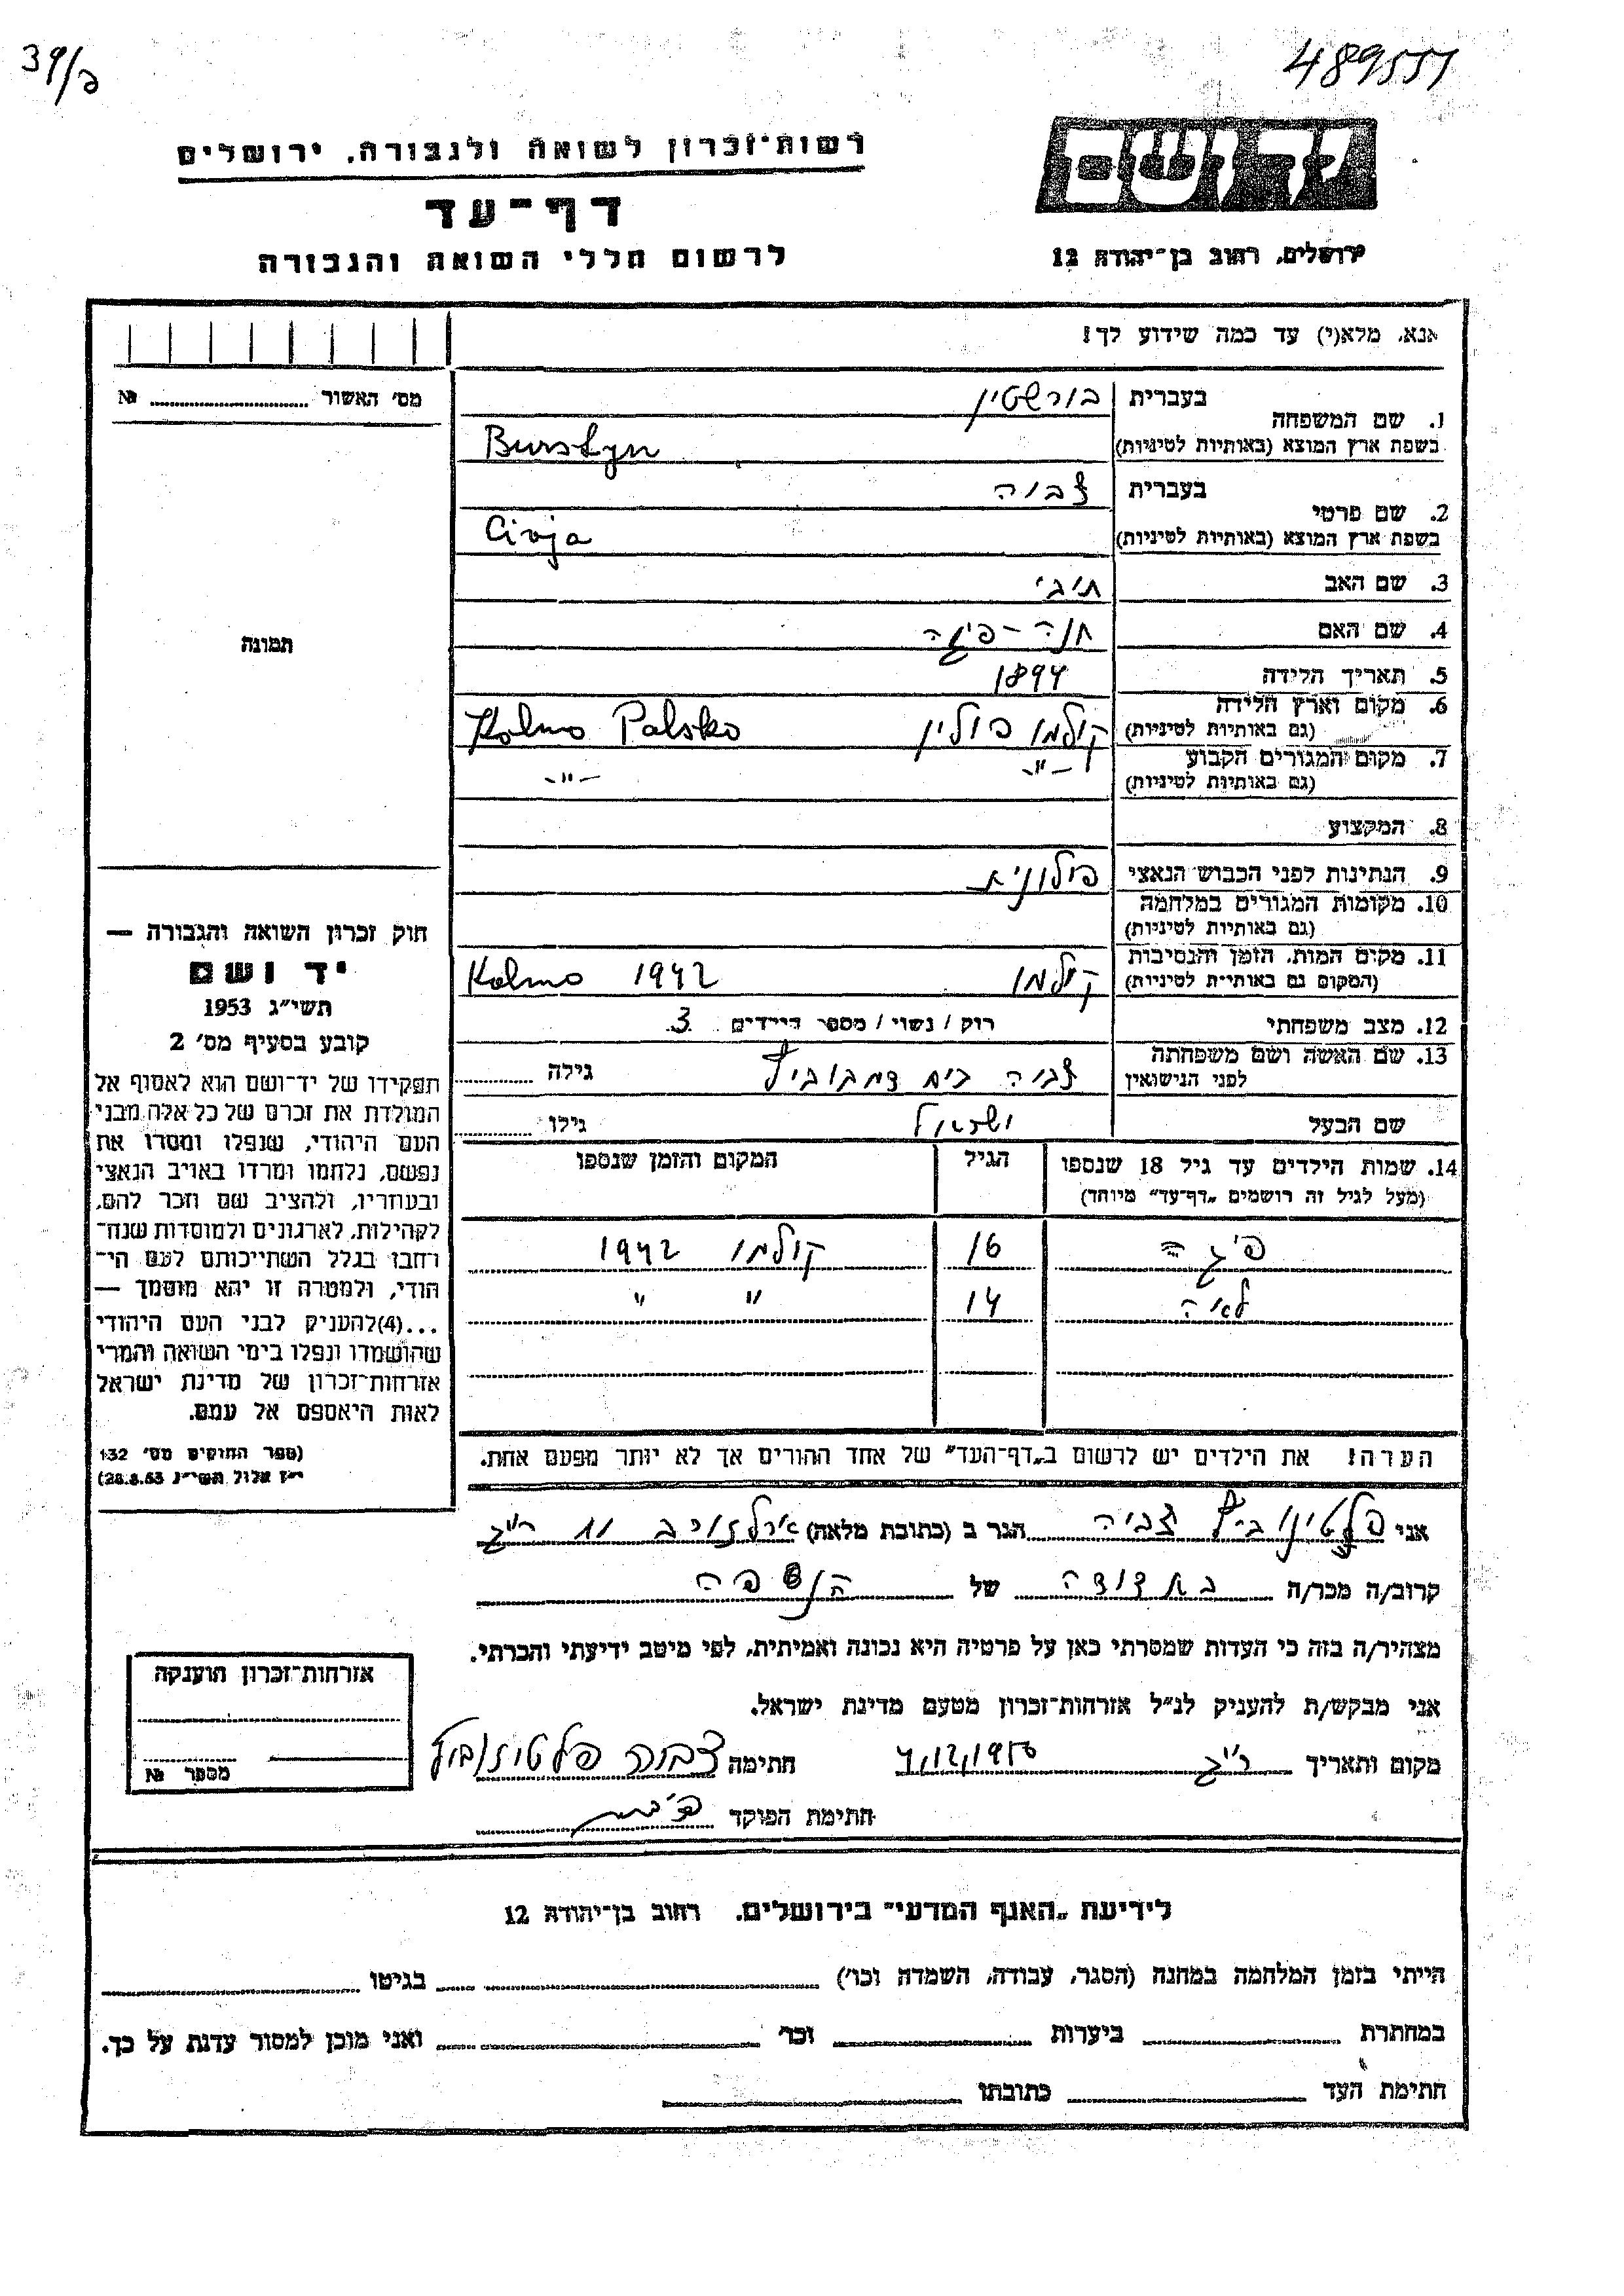 39/ב
489551
ידושם
ירושלים, רחוב בן־יהודה 12
רשות־זכרון לשואה ולגבורה, ירושלים
דף־עד
לרשום חללי השואה והגבורה
אנא, מלא(י) עד כמה שידוע לך!
מס׳ האשור № 
1. שם המשפחה בעברית בורשטין
בשפת ארץ המוצא (באותיות לטיניות) Bursztyn
2. שם פרטי בעברית צביה
בשפת ארץ המוצא (באותיות לטיניות) Civja
3. שם האב
4. שם האם חנה - פיגה
5. תאריך הלידה 1894
6. מקום וארץ הלידה קולמו פולין Kolmo Polsko
(גם באותיות לטיניות)
7. מקום המגורים הקבוע -"- -"-
(גם באותיות לטיניות)
8. המקצוע
9. הנתינות לפני הכבוש הנאצי פולונית
10. מקומות המגורים במלחמה
(גם באותיות לטיניות)
11. מקום המות, הזמן והנסיבות קולמו 1942 Kolmo
(המקום גם באותיות לטיניות)
12. מצב משפחתי רוק / נשוי / מספר הילדים 3
13. שם האשה ושם משפחתה צביה בית גילה
לפני הנישואין
שם הבעל ישראל גילו
14. שמות הילדים עד גיל 18 שנספו הגיל המקום והזמן שנספו
(מעל לגיל זה רושמים „דף־עד״ מיוחד)
פיגה 16 קולמו 1942
לאה 14 " "
הערה! את הילדים יש לרשום ב„דף־העד״ של אחד ההורים אך לא יותר מפעם אחת.
תמונה
חוק זכרון השואה והגבורה —
יד ושם
תשי״ג 1953
קובע בסעיף מס׳ 2
תפקידו של יד־ושם הוא לאסוף אל
המולדת את זכרם של כל אלה מבני
העם היהודי, שנפלו ומסרו את
נפשם, נלחמו ומרדו באויב הנאצי
ובעוזריו, ולהציב שם וזכר להם,
לקהילות, לארגונים ולמוסדות שנח־
רחבו בגלל השתייכותם לעם הי־
הודי, ולמטרה זו יהא מוסמך —
...(4)להעניק לבני העם היהודי
שהושמדו ונפלו בימי השואה והמרי
אזרחות־זכרון של מדינת ישראל
לאות היאספם אל עמם.
(ספר החוקים מס׳ 132
י״ז אלול תשי״ג 28.8.53)
אני צביה הגר ב (כתובת מלאה) ארלוזורוב 11 ר״ג
קרוב/ה מכר/ה בת דודה של הנספה
מצהיר/ה בזה כי העדות שמסרתי כאן על פרטיה היא נכונה ואמיתית, לפי מיטב ידיעתי והכרתי.
אני מבקש/ת להעניק לנ״ל אזרחות־זכרון מטעם מדינת ישראל.
מקום ותאריך ר״ג 4/12/1956 חתימה צביה
חתימת הפוקד
אזרחות־זכרון הוענקה
מספר №
לידיעת „האגף המדעי״ בירושלים. רחוב בן־יהודה 12
הייתי בזמן המלחמה במחנה (הסגר, עבודה, השמדה וכו׳) בגיטו
במחתרת ביערות וכו׳ ואני מוכן למסור עדות על כך.
חתימת העד כתובתו